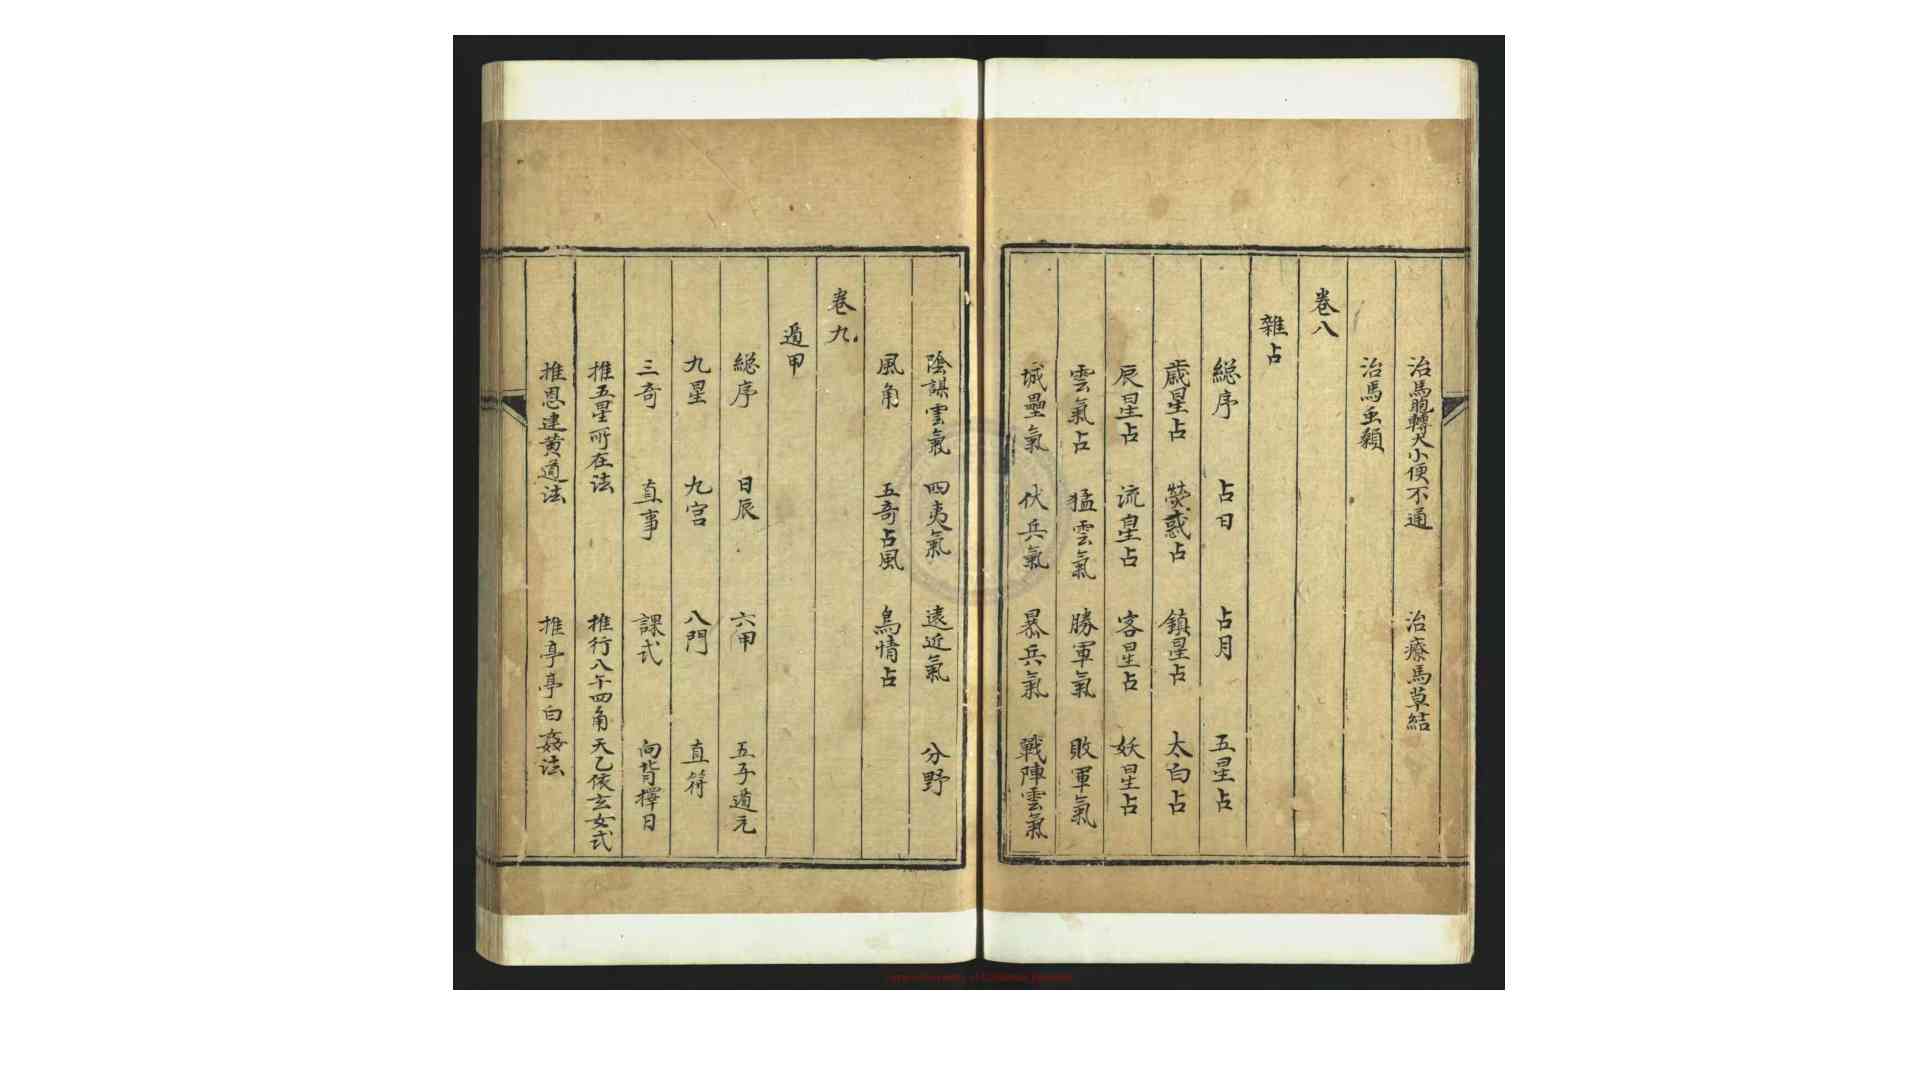 治馬胞轉大小便不通 治療馬草結
治馬虫顙
卷八
雜占
総序 占日 占月 五星占
歲星占 熒惑占 鎮星占 太白占
辰星占 流星占 客星占 妖星占
雲氣占 猛雲氣 勝軍氣 敗軍氣
城壘氣 伏兵氣 暴兵氣 戰陣雲氣
陰謀雲氣 四夷氣 遠近氣 分野
風角 五奇占風 鳥情占
卷九
遁甲
総序 日辰 六甲 五子遁元
九星 九宮 八門 直符
三奇 直事 課式 向背擇日
推五星所在法 推行八午四角天乙依玄女式
推恩建黃道法 推亭亭白姦法